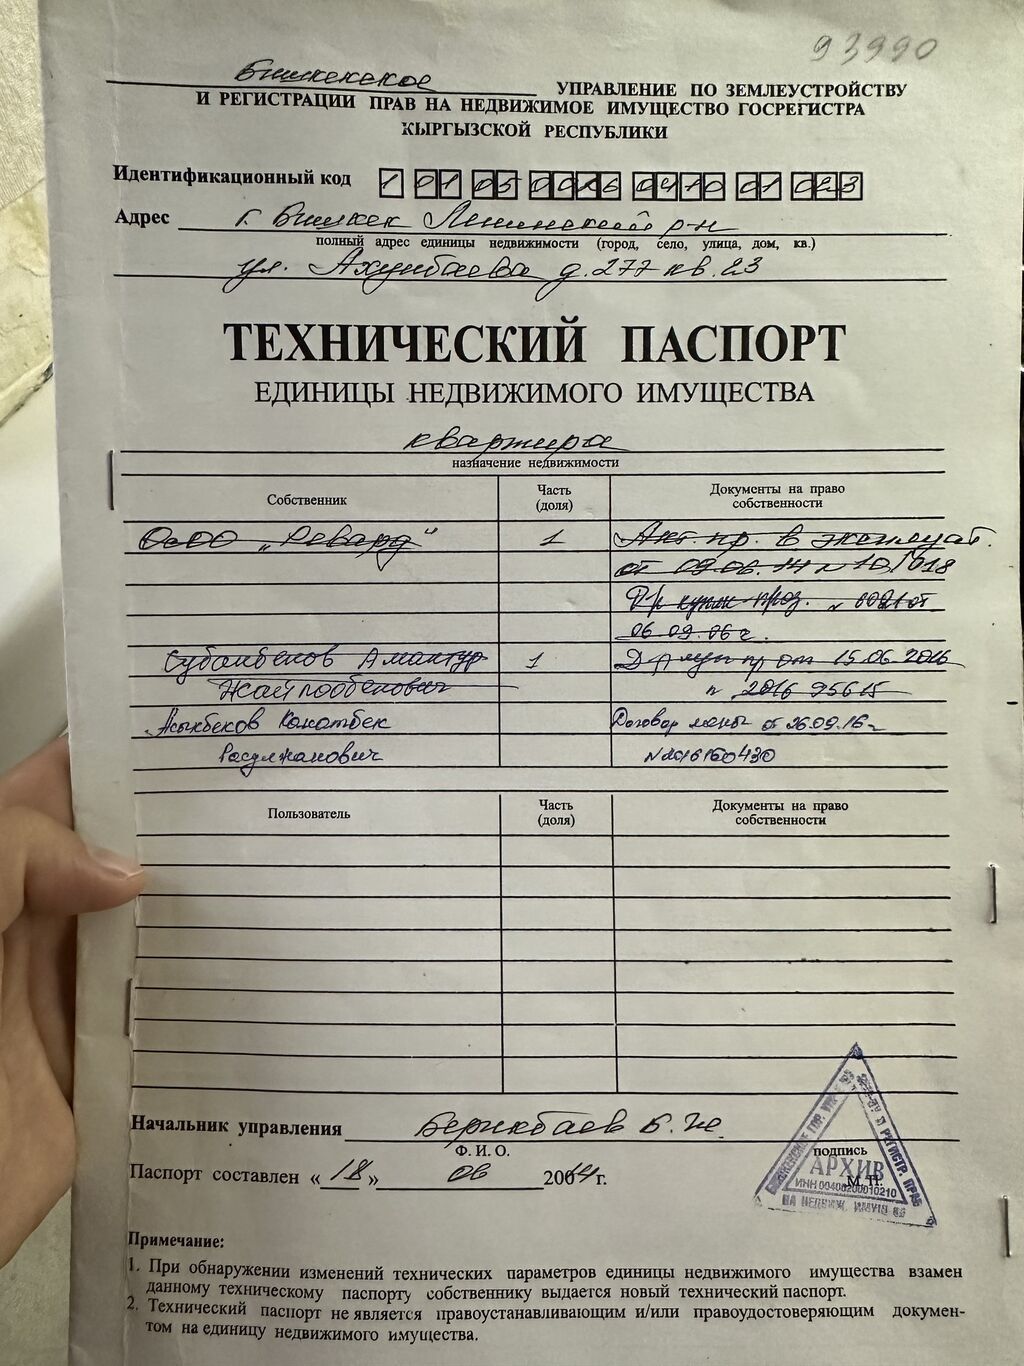 93990
Бишкекское УПРАВЛЕНИЕ ПО ЗЕМЛЕУСТРОЙСТВУ
И РЕГИСТРАЦИИ ПРАВ НА НЕДВИЖИМОЕ ИМУЩЕСТВО ГОСРЕГИСТРА
КЫРГЫЗСКОЙ РЕСПУБЛИКИ
Идентификационный код 1 01 05 0016 0410 01 023
Адрес г. Бишкек Ленинский р-н
полный адрес единицы недвижимости (город, село, улица, дом, кв.)
ул. Ахунбаева д. 277 кв. 23
ТЕХНИЧЕСКИЙ ПАСПОРТ
ЕДИНИЦЫ НЕДВИЖИМОГО ИМУЩЕСТВА
квартира
назначение недвижимости
Собственник Часть (доля) Документы на право собственности
ОсОО „Ревард" 1 Акт пр. в эксплуат.
от 09.06.14 № 10/018
06.09.06г.
Субанбеков Амантур 1 от 15.06.2016
Жайлообекович № 2016 95615
Асыкбеков Канатбек Договор мены от 26.09.16г
Расулжанович №2016160430
Пользователь Часть (доля) Документы на право собственности
Начальник управления Берикбаев Б.
Ф. И. О. подпись
Паспорт составлен «18» 06 2014г. М. П.
АРХИВ
ИНН 00408200010210
НА НЕДВИЖ. ИМУЩ-ВО
Примечание:
1. При обнаружении изменений технических параметров единицы недвижимого имущества взамен
данному техническому паспорту собственнику выдается новый технический паспорт.
2. Технический паспорт не является правоустанавливающим и/или правоудостоверяющим докумен-
том на единицу недвижимого имущества.